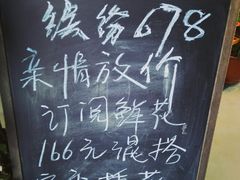 缤纷678
亲情放价
订阅鲜花
166元混搭